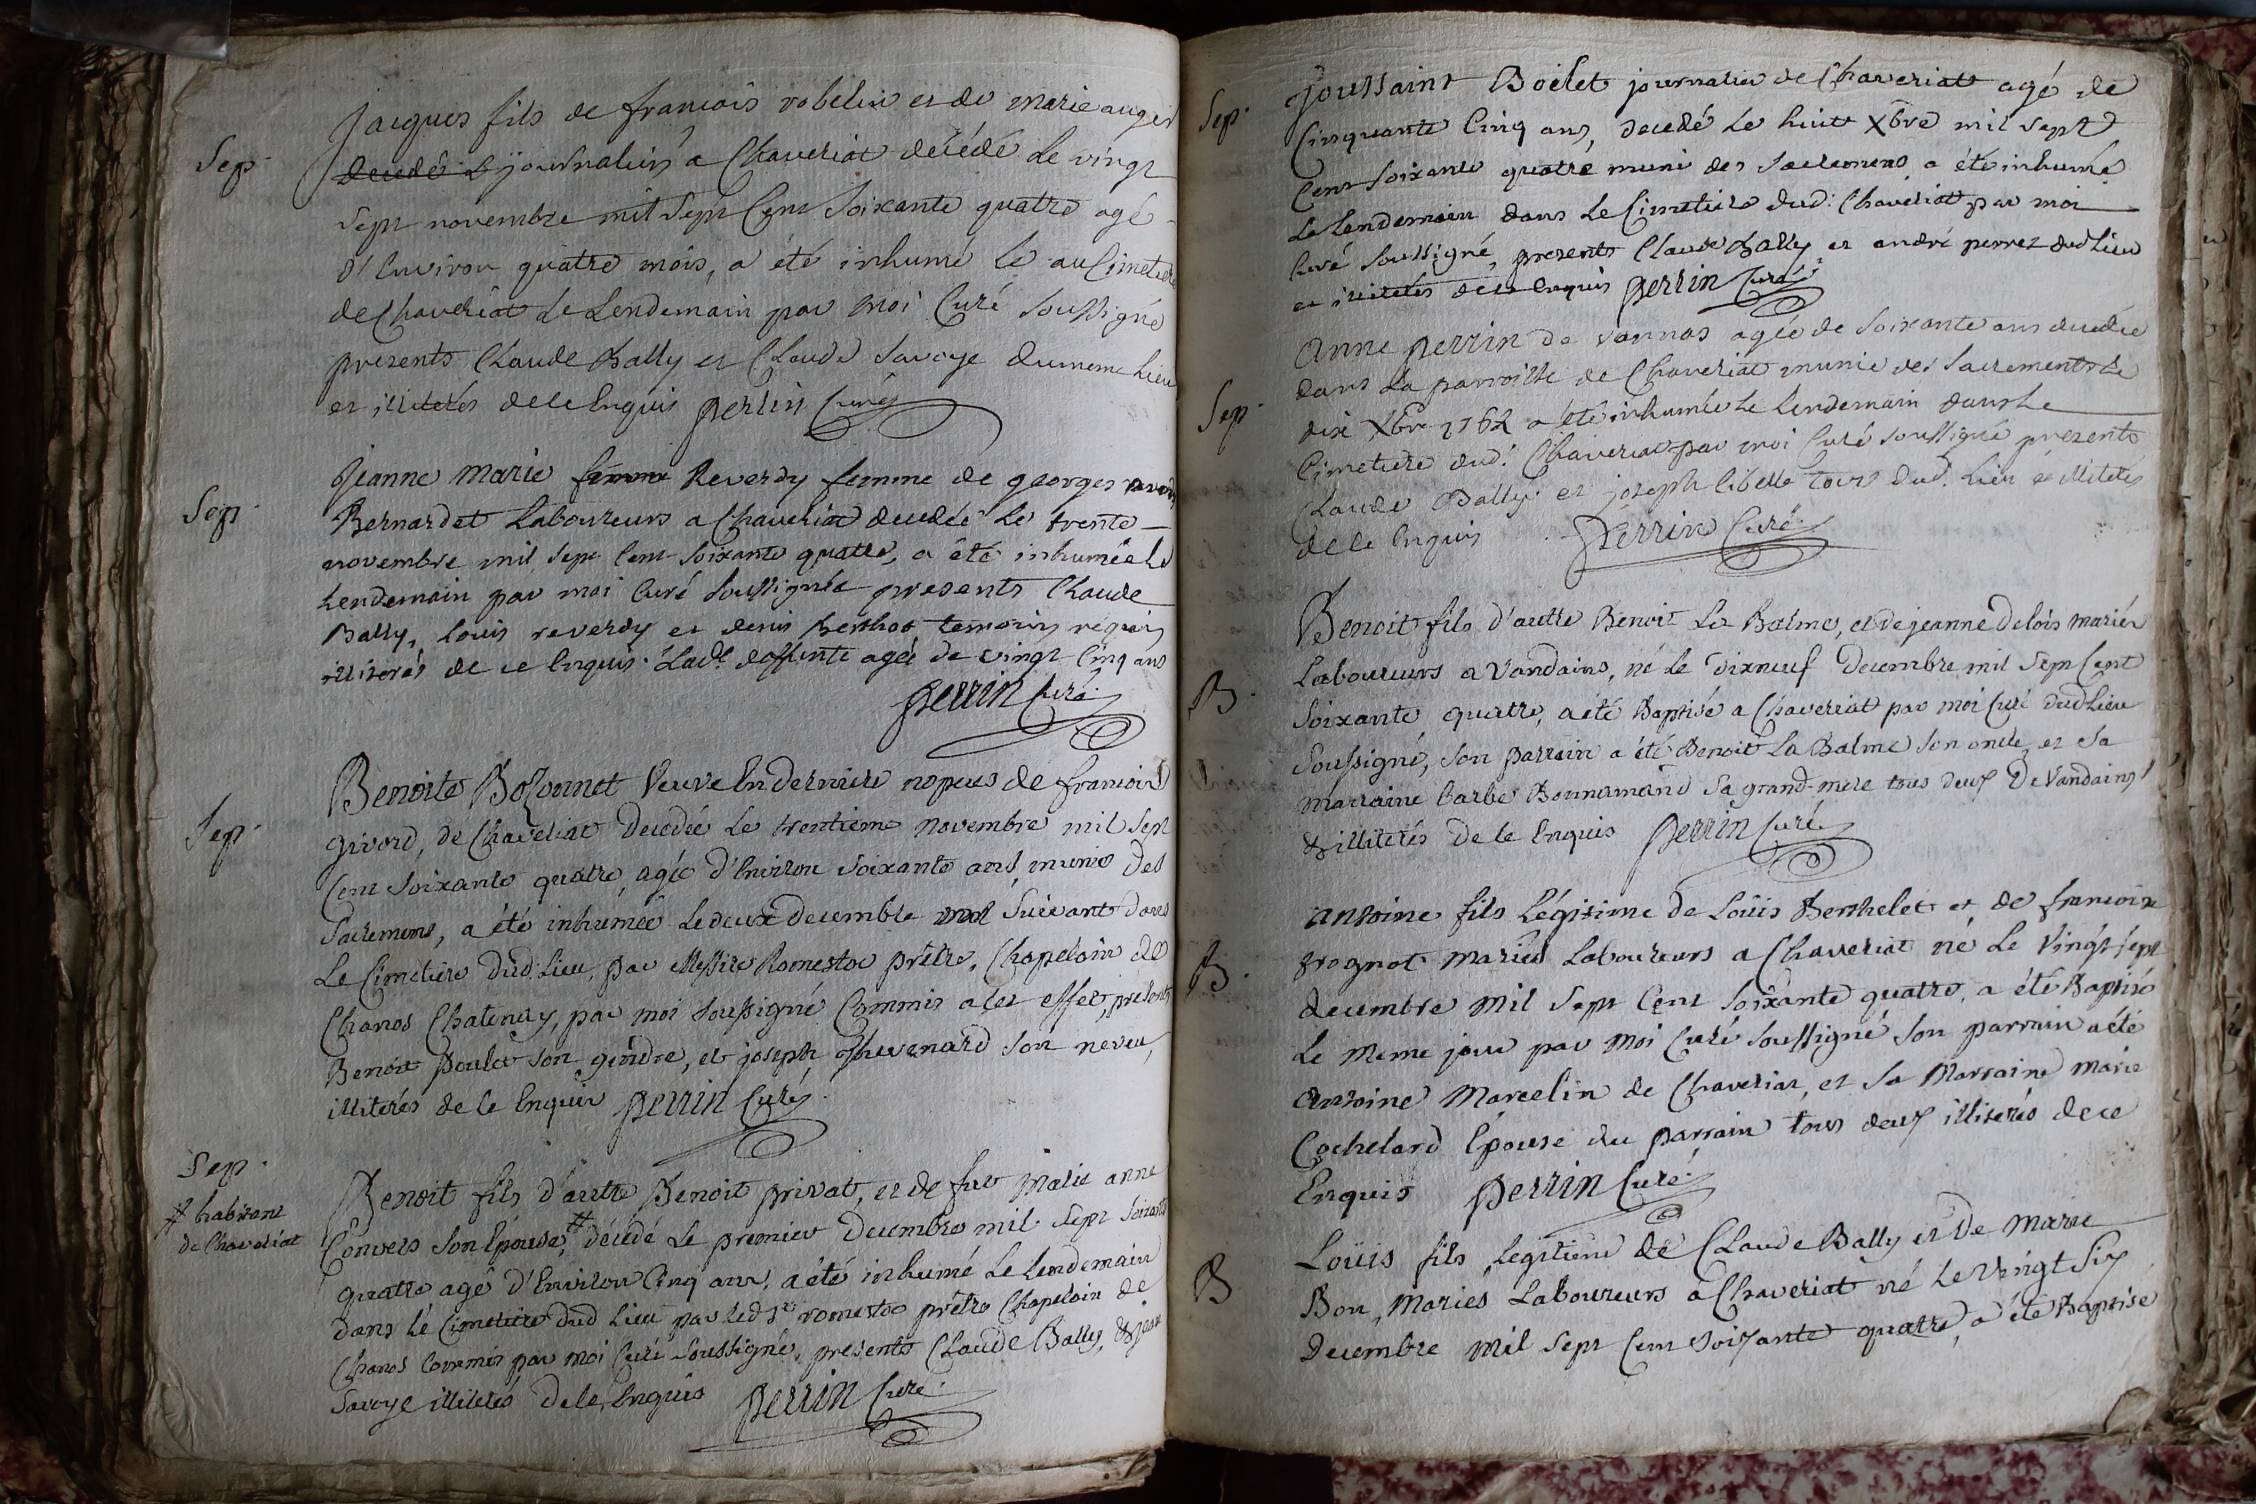 Sep.
Jacques fils de francois robelin et de marie auger
decedé L journaliers a Chaveriat décédé Le vingt
sept novembre mil Sept Cent Soixante quatre agé
d'Environ quatre mois, a été inhumé Le au Cimetiere
de Chaveriat Le Lendemain par moi Curé Soussigné
presents Claude Bally et Claude Savoye du meme Lieu
et illiterés de ce Enquis perrin Curé
Sep.
Jeanne marie femme Reverdy femme de georges
Bernardet Laboureurs a Chaveriat decedée Le trente
novembre mil sept Cent soixante quatre, a été inhumée Le
Lendemain par moi Curé Soussigné presents Claude
Bally, Louis reverdy et denis berthot temoins requis
illiterés de ce Enquis. Lade. deffunte agée de vingt Cinq ans
perrin Curé.
Sep.
Benoite Bozonnet Veuve En derniere nopces de francois
givord, de Chaveriat decedée Le trentieme novembre mil Sept
Cent Soixante quatre, agée d'Environ soixante ans, munie des
Sacremens, a été inhumée Le deux decembre mil Suivant dans
Le Cimetiere dud: Lieu, par Messire Romestoc prêtre, Chapelain de
Chanos Chatenay, par moi Soussigné Commis a cet effet, presents
Benoit poulet son gendre, et joseph thevenard son neveu,
illiterés de ce Enquis perrin Curé.
Sep.
# habitant
de Chaveriat
Benoit fils d'autre Benoit privat, et de fut Marie anne
Convers Son Epouse, # décédé Le premier Décembre mil Sept Soixante
quatre agé d'Environ Cinq ans, a été inhumé Le Lendemain
dans le Cimetiere dud Lieu par led Sr. romestoc prêtre Chapelain de
Chanos Commis par moi Curé Soussigné, presents Claude Bally, & jean
Savoye illiterés de ce Enquis perrin Curé.
Sep.
Toussaint Boilet journalier de Chaveriat agé de
Cinquante Cinq ans, decedé Le huit Xbre mil Sept
Cent Soixante quatre muni des Sacremens a été inhumé
Le Lendemain dans Le Cimetiere dud: Chaveriat par moi
Curé Soussigné, presents Claude Bally et andré perret dud Lieu
et illiterés de ce Enquis perrin Curé
Sep.
Anne perrin de vonnas agée de Soixante ans decedée
dans La parroisse de Chaveriat munie des Sacrements Le
dix Xbre 1764 a été inhumée Le Lendemain dans Le
Cimetiere dud: Chaveriat par moi Curé Soussigné presents
Claude Bally et joseph Libelle tous dud. Lieu et illiterés
de ce Enquis perrin Curé.
B.
Benoit fils d'autre Benoit La Balme, et de jeanne Delois mariés
Laboureurs a Vandains, né Le Dixneuf Decembre mil Sept Cent
Soixante quatre, a été Baptisé a Chaveriat par moi Curé dud Lieu
Soussigné, son parrain a été Benoit La Balme Son oncle, et sa
marraine barbe Bonnamand Sa grand-mere tous deux De Vandains
& illiterés De Ce Enquis perrin Curé
B.
Antoine fils Légitime de Loüis Berthelet et de francoise
grognot mariés Laboureurs a Chaveriat né Le Vingt Sept
decembre mil Sept Cent Soixante quatre, a été Baptisé
Le meme jour par moi Curé Soussigné Son parrain a été
Antoine Marcelin de Chaveriat, et Sa Marraine marie
Cochelard Epouse du parrain tous deux illiterés de ce
Enquis perrin Curé.
B
Loüis fils Légitime de Claude Bally et De Marie
Bon, Mariés Laboureurs a Chaveriat né Le Vingt Six
Decembre mil Sept Cent Soixante quatre, a été Baptisé